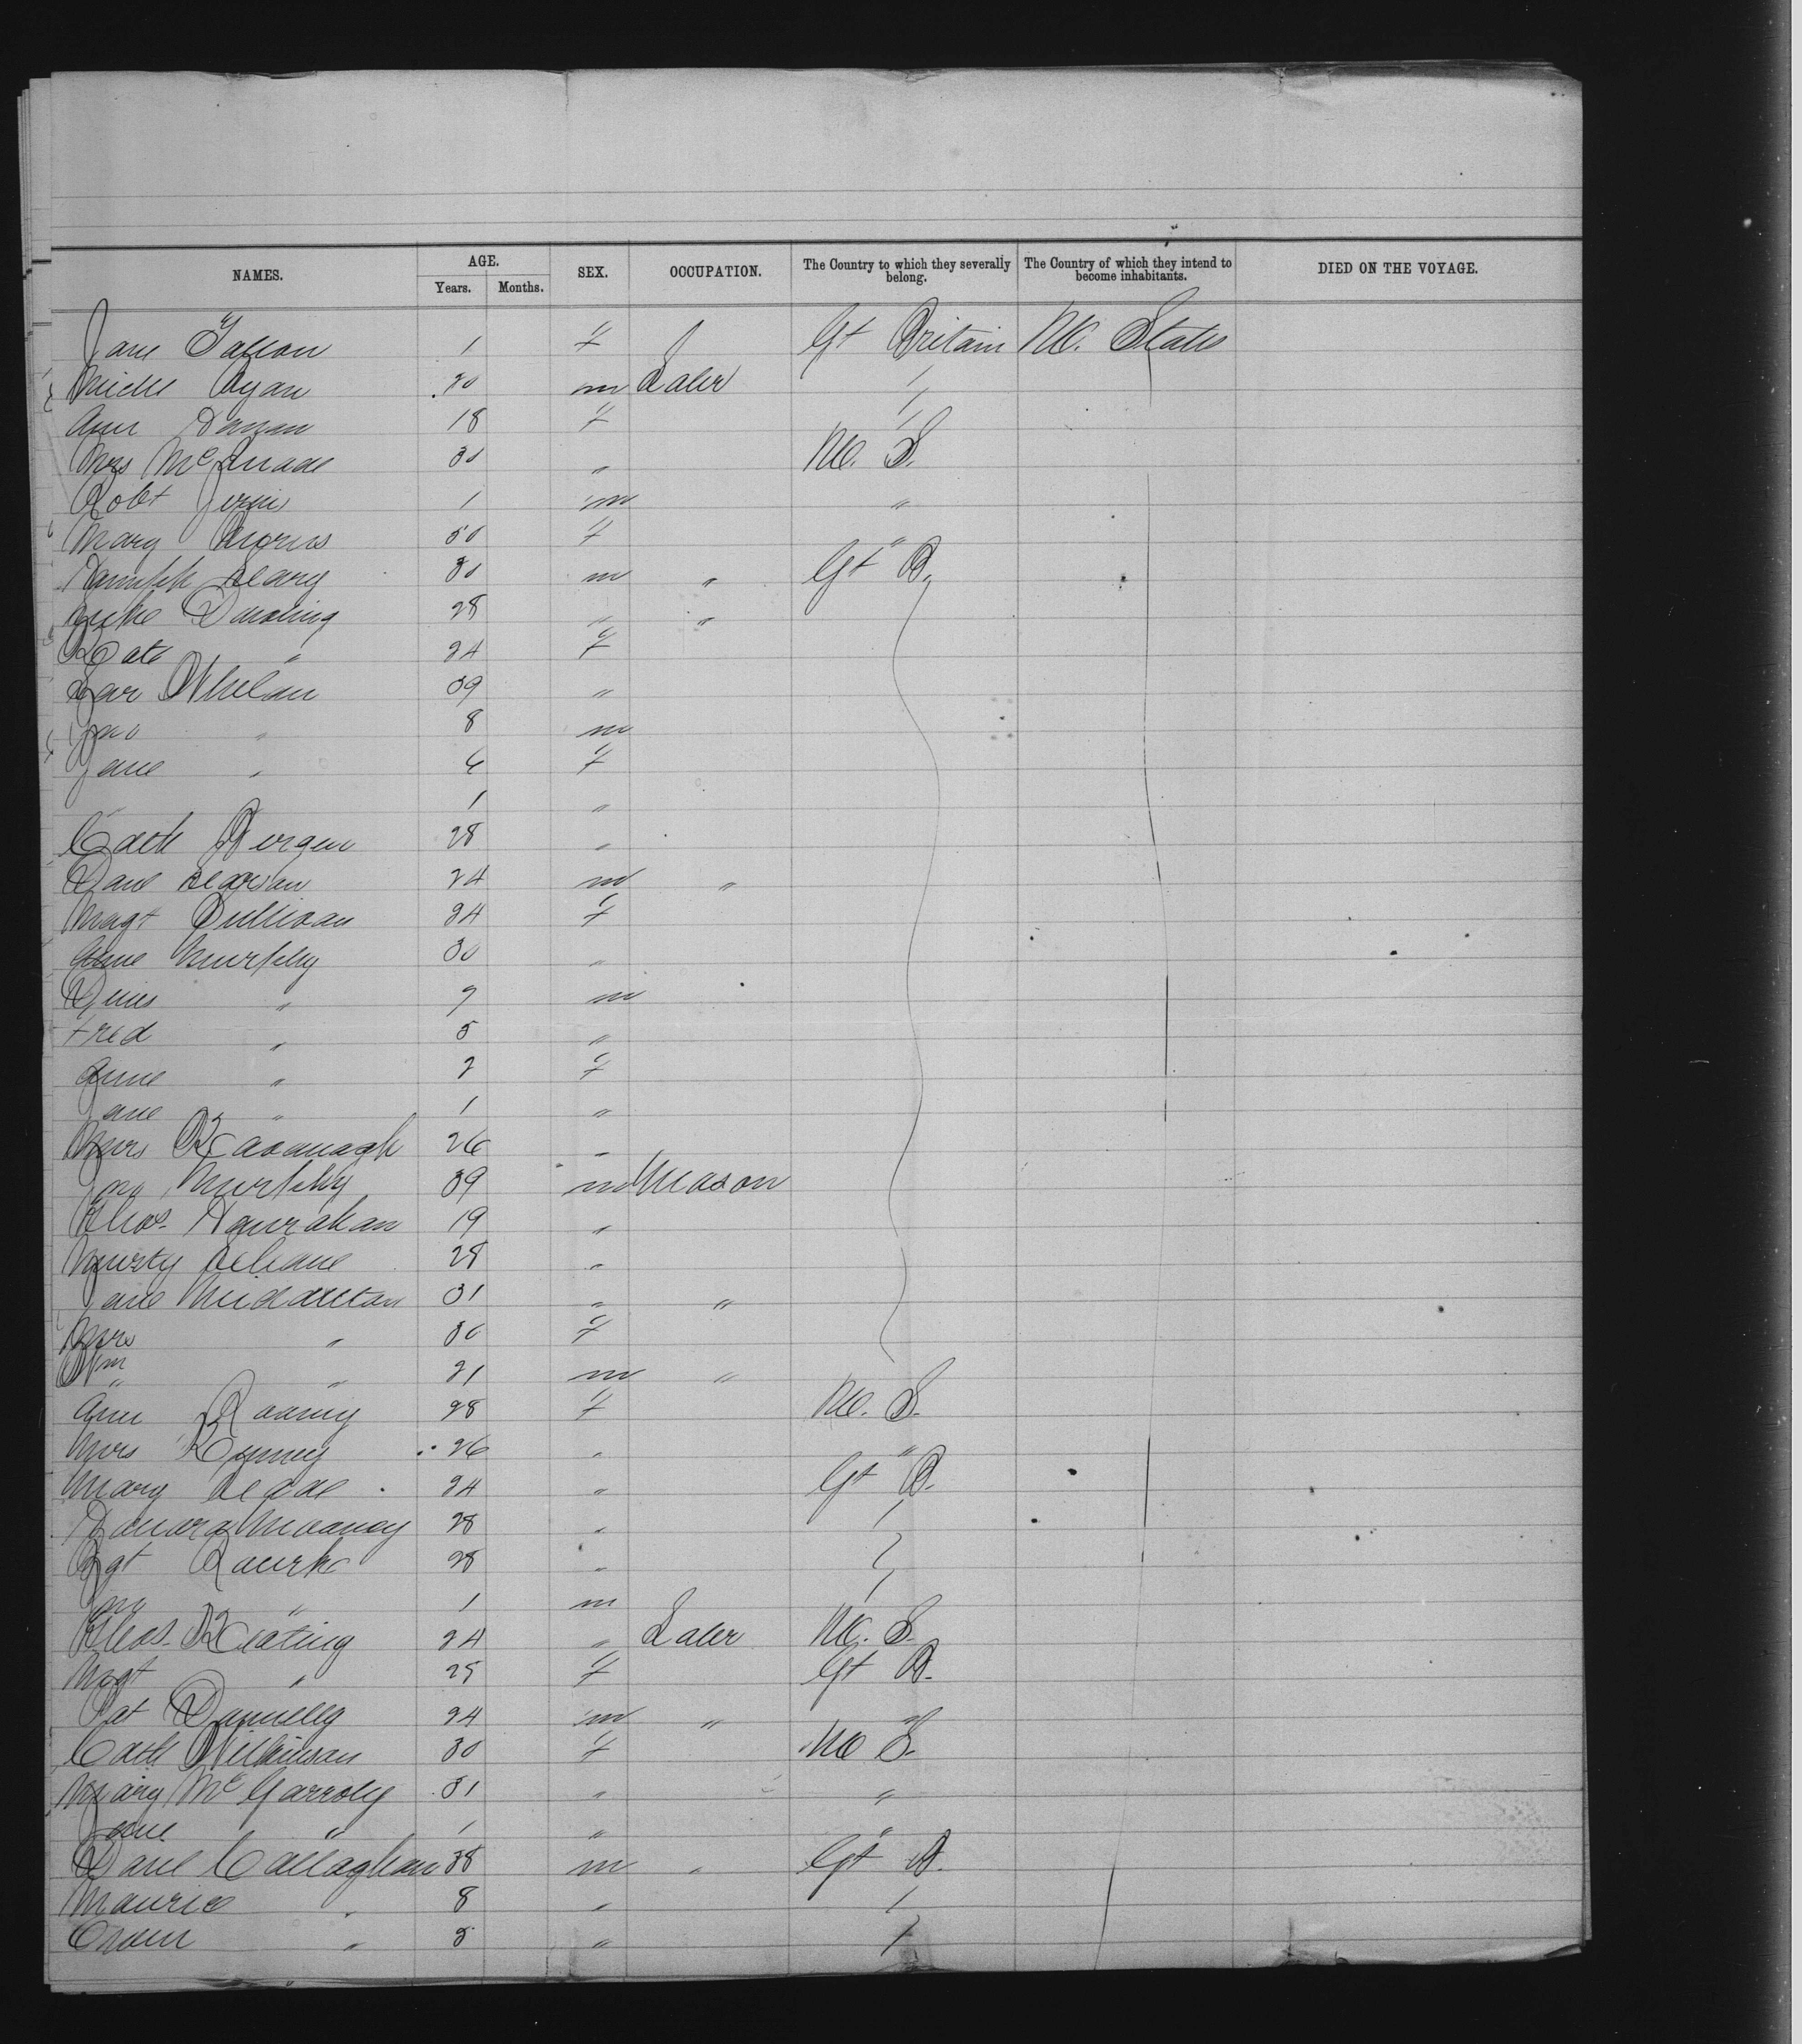 NAMES. AGE. SEX. OCCUPATION. The Country to which they severally belong. The Country of which they intend to become inhabitants. DIED ON THE VOYAGE.
Years. Months.
Jane Fallon 1 f Gt Britain U. States
Ryan 20 m Labr
Ann 18 f "
Mrs McQuade 30 " U. S.
Robt 1 m "
Mary Morris 50 f "
Leary 30 m " Gt B.
Luke Dowling 28 " "
Kate " 24 f
Mar Whelan 39 "
Jno " 8 m
Jane " 6 f
" 1 "
Cath Bergen 28 "
Danl 24 m "
Magt Sullivan 24 f
Anne Murphy 30 "
Denis " 7 m
Fred " 5 "
Anne " 2 f
Jane " 1 "
Mrs Kavanagh 26 "
Jno Murphy 39 m Mason
Thos. Hanrahan 19 "
Murty 28 "
Middleton 31 " "
Mrs " 30 f
Wm " 21 m "
Ann Rooney 28 f U. S.
Mrs 26 " "
Mary 24 " Gt B.
Honora Mooney 28 "
Bgt Rourke 28 "
Jno " 1 m
Thos. Keating 24 " Labr U. S.
Magt " 25 f Gt B.
Pat Donnelly 24 m " "
Cath Wilkinson 30 f U S.
Mary McGarroly 31 " "
Jane " 1 " "
Danl Callaghan 38 m " Gt B.
Maurice " 8 "
Owen " 5 "